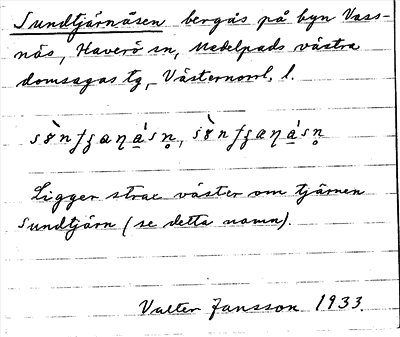 Sundtjärnåsen bergås på byn Vass-
näs, Haverö sn, Medelpads västra
domsagas tg, Västernorrl. l.
Ligger strax väster om tjärnen
Sundtjärn (se detta namn).
Valter Jansson 1933.